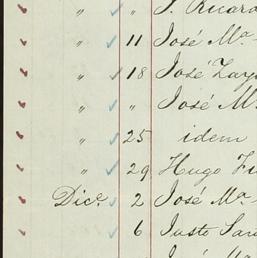 " " J. Ricard
" 11 José Mª
" 18 José Zay
" " José M
" 25 idem
" 29 Hugo Fu
Dice. 2 José Mª
6 Justo Sar